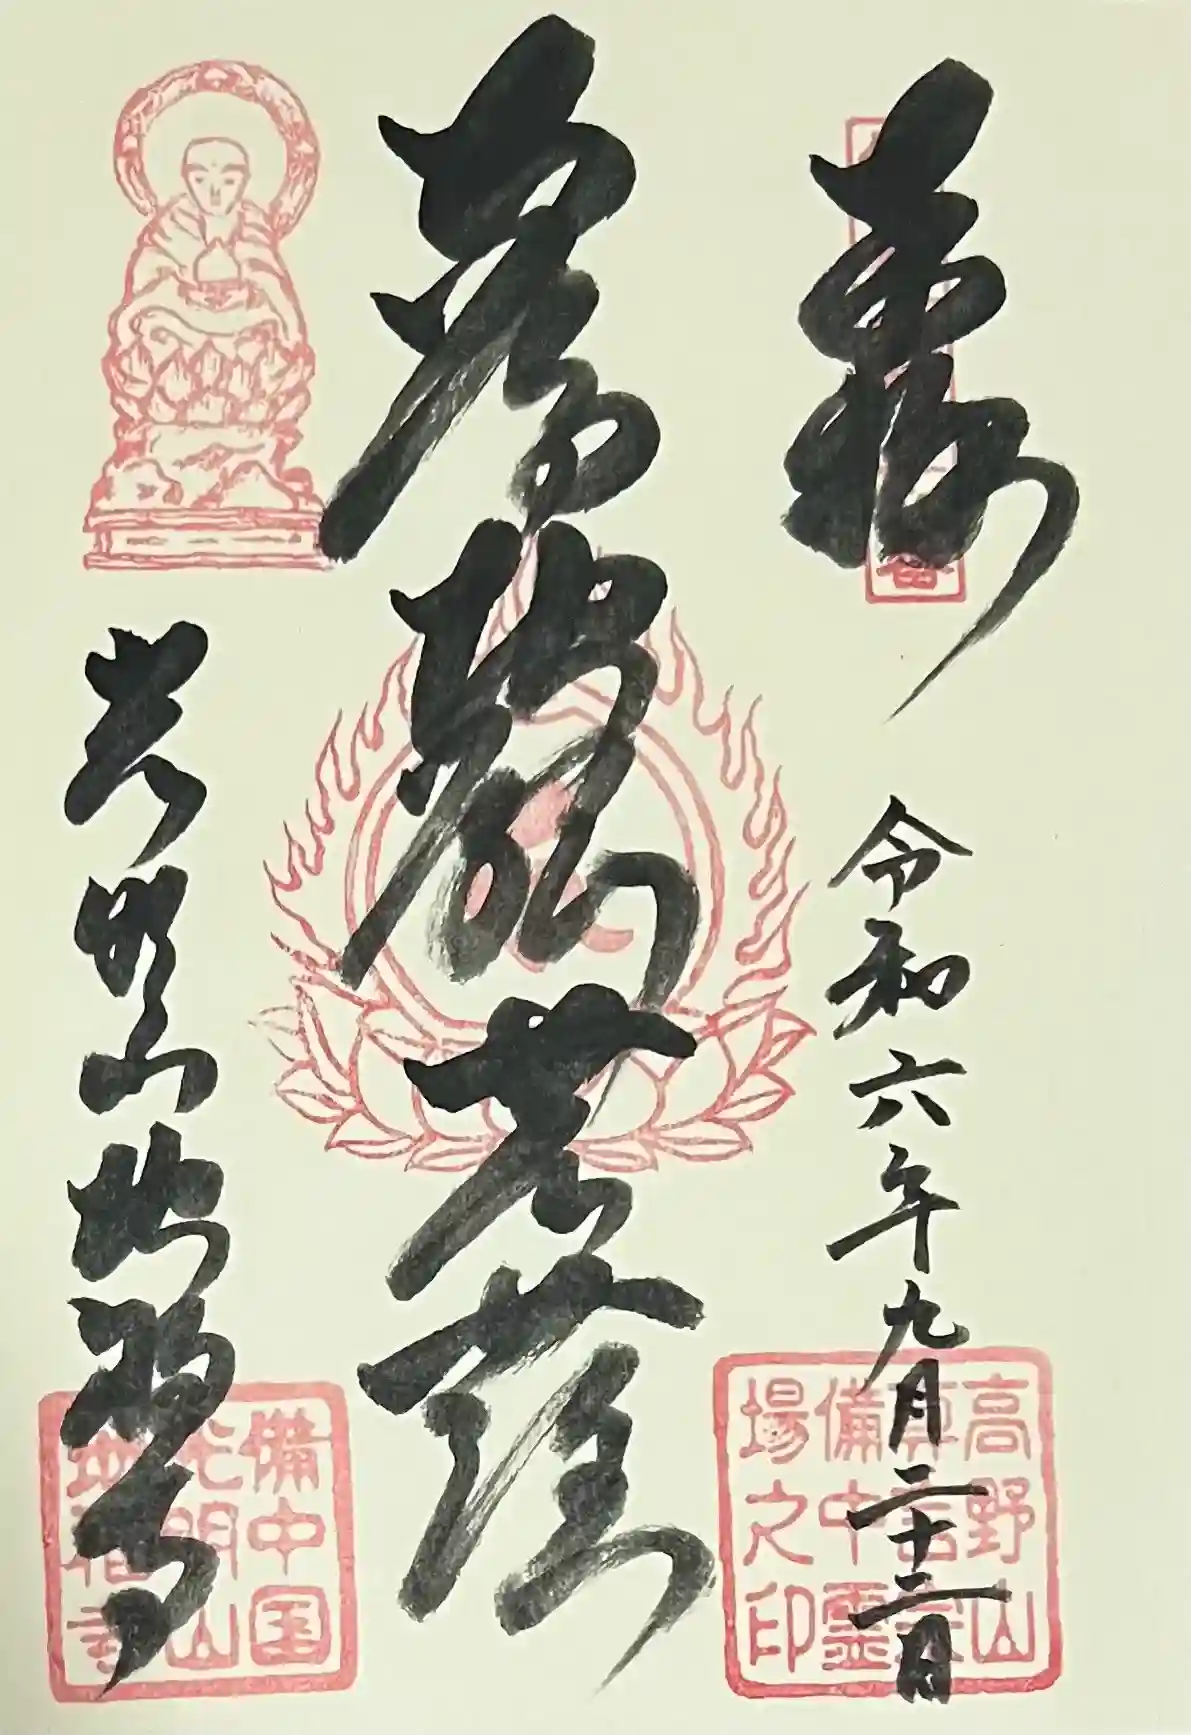 奉拝
令和六年九月二十二日
地蔵菩薩
光明山地蔵寺
高野山
真言宗
備中霊
場之印
備中国
光明山
地蔵寺